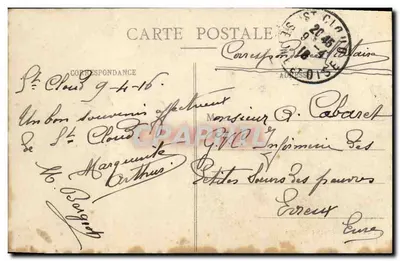 CARTE POSTALE
ST CLOUD
20 45
9 - 4
16
SEINE ET OISE
Correspondance Militaire
CORRESPONDANCE
ADRESSE
St Cloud 9-4-16
Un bon souvenir affectueux
de St Cloud
Marguerite
Arthur
Monsieur A. Cabaret
G.V.C. Infirmerie des
Petites Sœurs des pauvres
Evreux
Eure
Cartapostale